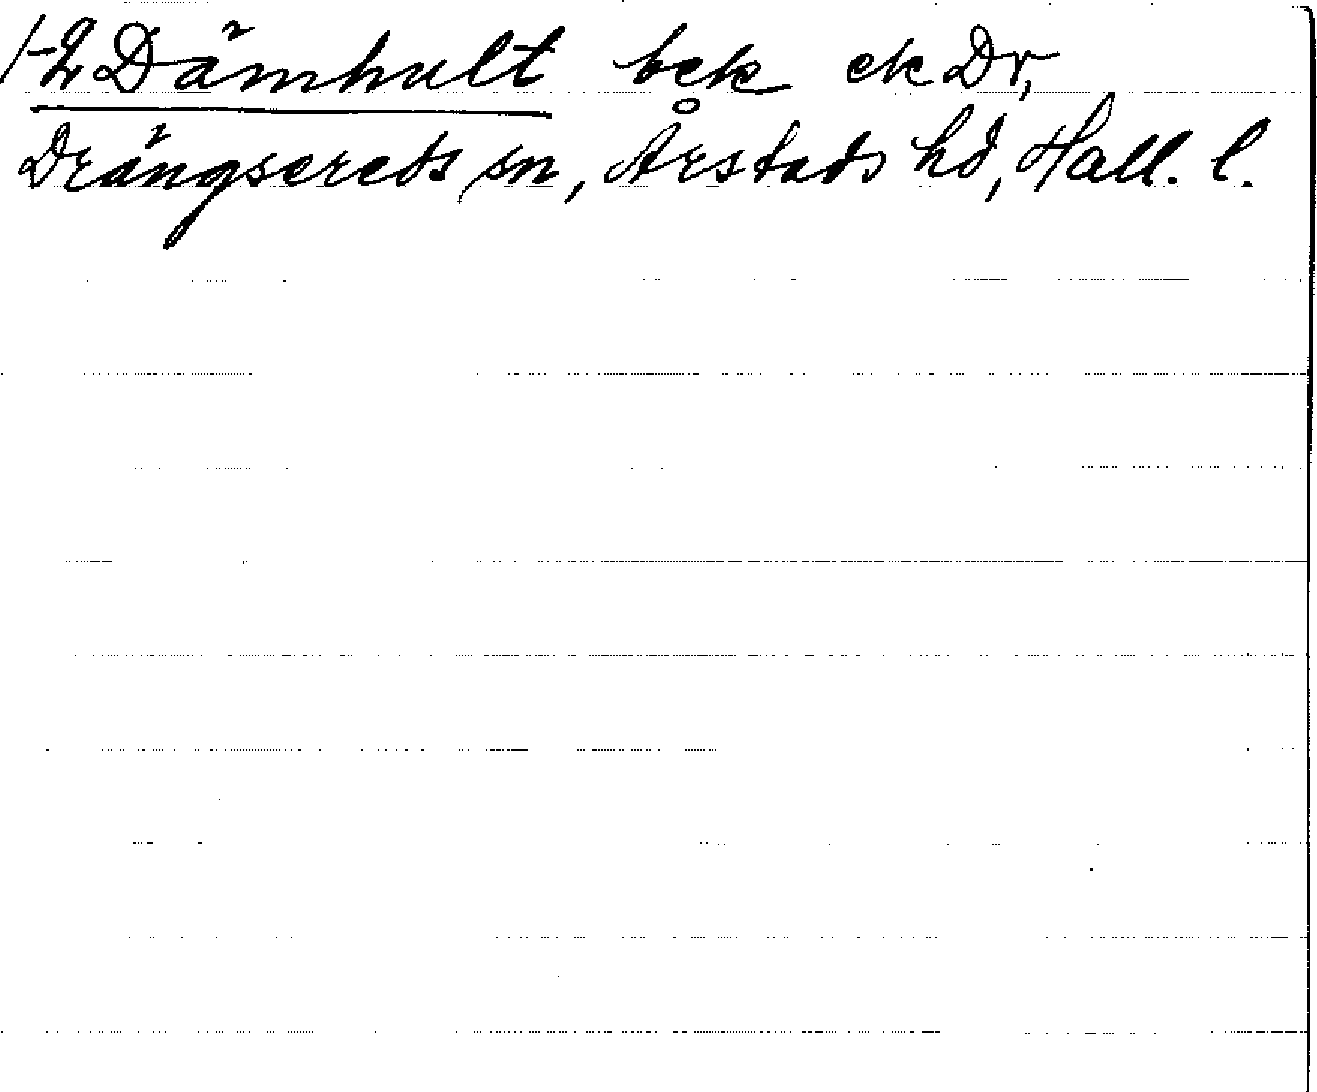 1-2 Dämhult bek ek Dr,
Drängsereds sn, Årstads hd, Hall. l.